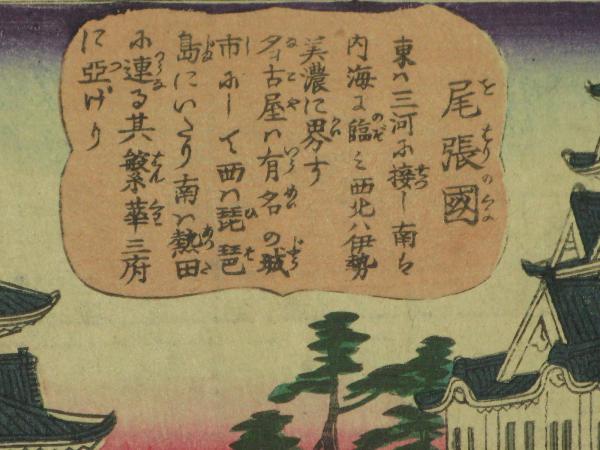 尾張國
東ハ三河に接し南は
内海に臨ミ西北ハ伊勢
美濃に界す
名古屋ハ有名の城
市にして西ハ琵琶
島にいたり南ハ熱田
に連る其繁華三府
に亞げり